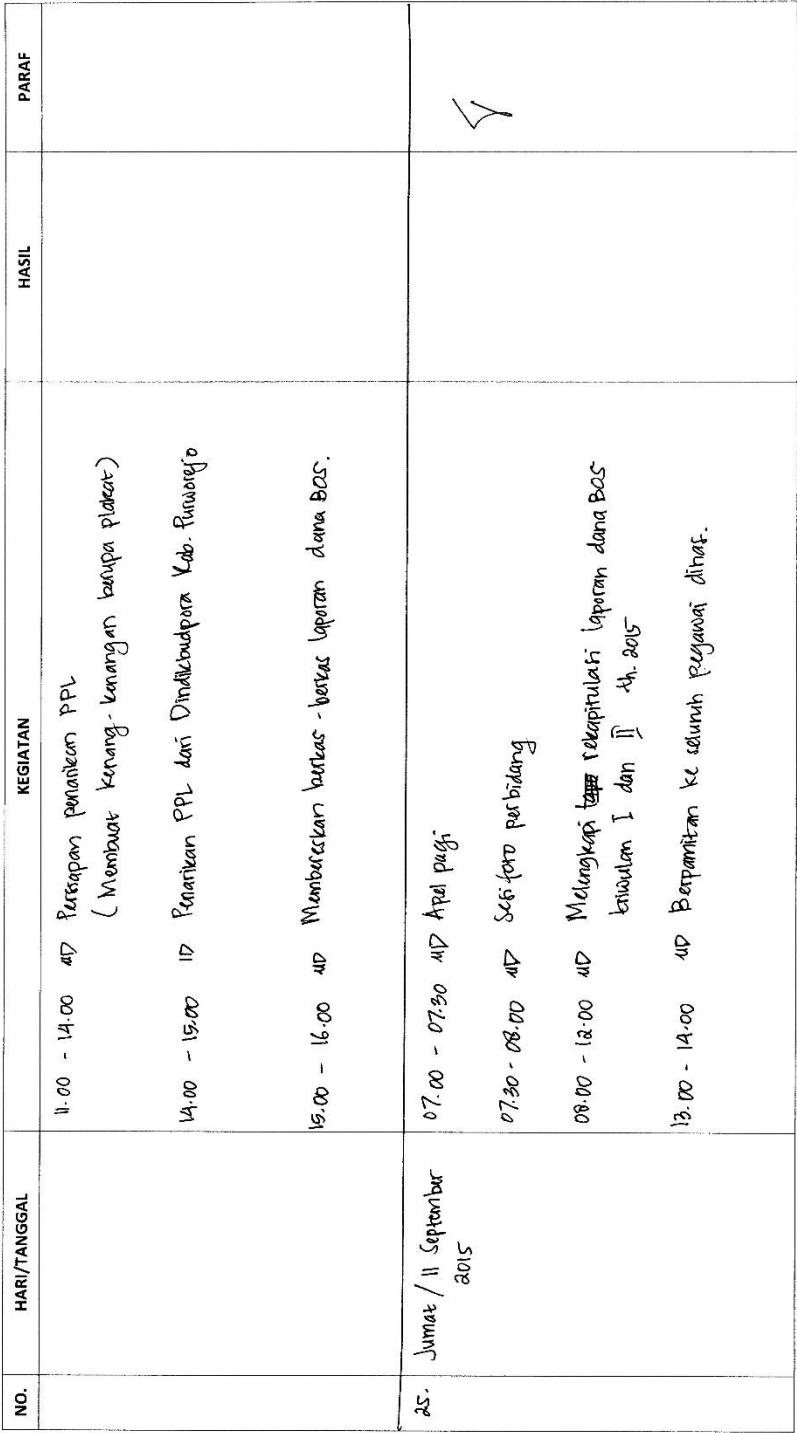 NO. HARI/TANGGAL KEGIATAN HASIL PARAF
11.00 - 14.00 Persiapan penarikan PPL
(Membuat kenang-kenangan berupa plakat)
14.00 - 15.00 Penarikan PPL dari Dindikbudpora Kab. Purworejo
15.00 - 16.00 Membereskan berkas-berkas laporan dana BOS.
25. Jumat / 11 September 07.00 - 07.30 Apel pagi
2015
07.30 - 08.00 Sesi foto perbidang
08.00 - 12.00 Melengkapi rekapitulasi laporan dana BOS
triwulan I dan II th. 2015
13.00 - 14.00 Berpamitan ke seluruh pegawai dinas.